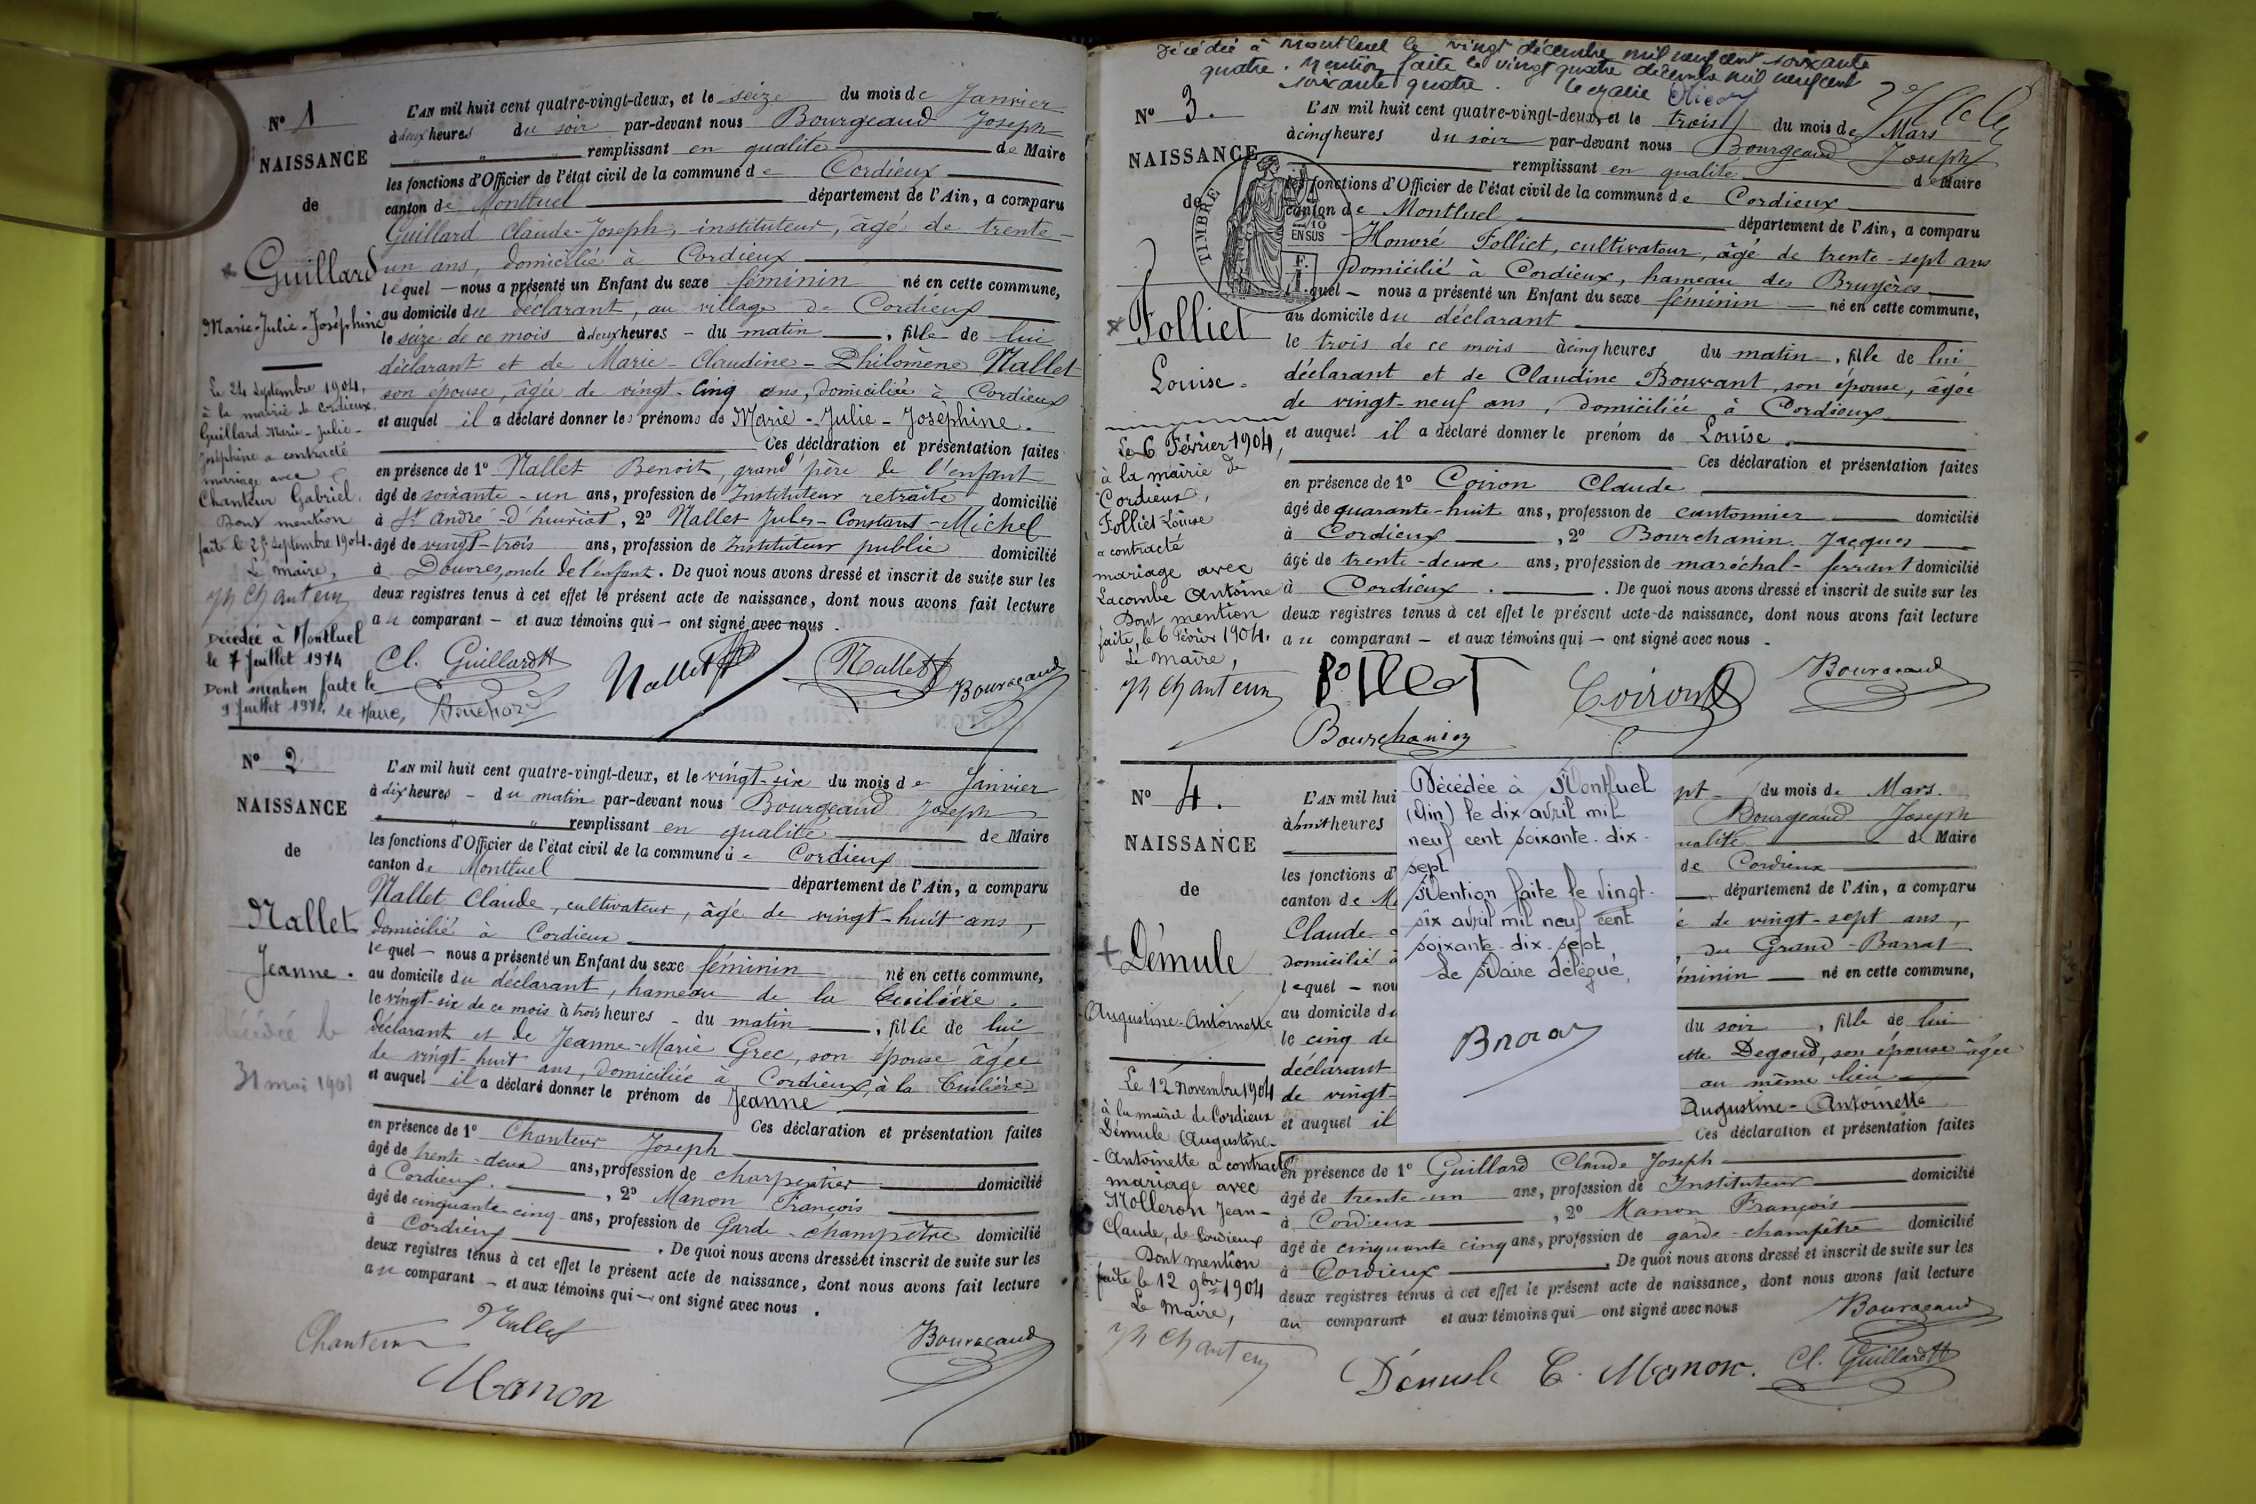 N° 1
NAISSANCE
de
Guillard
Marie-Julie-Joséphine
Le 24 Septembre 1904,
à la mairie de Cordieux
Guillard Marie-Julie-
Joséphine a contracté
mariage avec
Chanteur Gabriel.
Dont mention
faite le septembre 1904.
Le Maire,
Chanteur
Décédée à Montluel
le 7 Juillet 1974
Dont mention faite le
9 Juillet 1974 Le Maire,
L'AN mil huit cent quatre-vingt-deux, et le seize du mois de Janvier
à deux heures du soir par-devant nous Bourgeaud Joseph
remplissant en qualité de Maire
les fonctions d'Officier de l'état civil de la commune de Cordieux
canton de Montluel département de l'Ain, a comparu
Guillard Claude-Joseph, instituteur, âgé de trente-
un ans, domicilié à Cordieux
lequel — nous a présenté un Enfant du sexe féminin né en cette commune,
au domicile du déclarant, au village de Cordieux
le seize de ce mois à deux heures - du matin, fille de lui
déclarant et de Marie-Claudine-Philomène Nallet
son épouse, âgée de vingt-cinq ans, domiciliée à Cordieux
et auquel il a déclaré donner les prénoms de Marie-Julie-Joséphine.
Ces déclaration et présentation faites
en présence de 1° Nallet Benoit, grand père de l'enfant
âgé de soixante-un ans, profession de Instituteur retraité domicilié
à St André-d'huiriat, 2° Nallet Jules-Constant-Michel
âgé de vingt-trois ans, profession de Instituteur public domicilié
à Douvres, oncle de l'enfant. De quoi nous avons dressé et inscrit de suite sur les
deux registres tenus à cet effet le présent acte de naissance, dont nous avons fait lecture
au comparant — et aux témoins qui — ont signé avec nous.
Cl. Guillard Nallet Nallet Bourgeaud
N° 2
NAISSANCE
de
Nallet
Jeanne.
décédée le
31 mai 1901
L'AN mil huit cent quatre-vingt-deux, et le vingt-six du mois de Janvier
à dix heures - du matin par-devant nous Bourgeaud Joseph
remplissant en qualité de Maire
les fonctions d'Officier de l'état civil de la commune de Cordieux
canton de Montluel département de l'Ain, a comparu
Nallet Claude, cultivateur, âgé de vingt-huit ans,
domicilié à Cordieux
lequel — nous a présenté un Enfant du sexe féminin né en cette commune,
au domicile du déclarant, hameau de la
le vingt-six de ce mois à trois heures - du matin, fille de lui
déclarant et de Jeanne-Marie Grec, son épouse âgée
de vingt-huit ans, domiciliée à Cordieux, à la
et auquel il a déclaré donner le prénom de Jeanne
Ces déclaration et présentation faites
en présence de 1° Chanteur Joseph
âgé de trente-deux ans, profession de charpentier domicilié
à Cordieux, 2° Manon François
âgé de cinquante-cinq ans, profession de Garde-champêtre domicilié
à Cordieux. De quoi nous avons dressé et inscrit de suite sur les
deux registres tenus à cet effet le présent acte de naissance, dont nous avons fait lecture
au comparant — et aux témoins qui — ont signé avec nous.
Chanteur Nallet Manon Bourgeaud
Décédée à Montluel le vingt décembre mil neuf cent soixante
quatre. Mention faite le vingt quatre décembre mil neuf cent
soixante quatre. Le Maire
N° 3.
NAISSANCE
de
TIMBRE
10
EN SUS
Folliet
Louise.
Le 6 Février 1904,
à la mairie de
Cordieux,
Folliet Louise
a contracté
mariage avec
Lacombe Antoine
Dont mention
faite, le 6 Février 1904.
Le Maire,
Chanteur
L'AN mil huit cent quatre-vingt-deux, et le trois du mois de Mars
à cinq heures du soir par-devant nous Bourgeaud Joseph
remplissant en qualité de Maire
les fonctions d'Officier de l'état civil de la commune de Cordieux
canton de Montluel département de l'Ain, a comparu
Honoré Folliet, cultivateur, âgé de trente-sept ans
domicilié à Cordieux, hameau des Bruyères
lequel — nous a présenté un Enfant du sexe féminin — né en cette commune,
au domicile du déclarant
le trois de ce mois à cinq heures du matin, fille de lui
déclarant et de Claudine Bouvant, son épouse, âgée
de vingt-neuf ans, domiciliée à Cordieux
et auquel il a déclaré donner le prénom de Louise.
Ces déclaration et présentation faites
en présence de 1° Coiron Claude
âgé de quarante-huit ans, profession de cantonnier domicilié
à Cordieux, 2° Bourchanin Jacques
âgé de trente-deux ans, profession de maréchal-ferrant domicilié
à Cordieux. De quoi nous avons dressé et inscrit de suite sur les
deux registres tenus à cet effet le présent acte de naissance, dont nous avons fait lecture
au comparant — et aux témoins qui — ont signé avec nous.
Folliet Coiron Bourgeaud
Bourchanin
N° 4.
NAISSANCE
de
Démule
Augustine-Antoinette
Le 12 novembre 1904
à la mairie de Cordieux
Démule Augustine-
Antoinette a contracté
mariage avec
Molleron Jean-
Claude, de Cordieux
Dont mention
faite le 12 9bre 1904
Le Maire,
Chanteur
L'AN mil hui
à huit heures
les fonctions d'
canton de M
Claude
domicilié à
lequel — nou
au domicile du
le cinq de
déclarant
de vingt-
et auquel il
Décédée à Montluel
(Ain) le dix avril mil
neuf cent soixante-dix-
sept
Mention faite le vingt-
six avril mil neuf cent
soixante-dix-sept.
Le Maire délégué,
pt du mois de Mars.
Bourgeaud Joseph
ualité de Maire
de Cordieux
département de l'Ain, a comparu
é de vingt-sept ans,
du Grand-Barrat
éminin — né en cette commune,
du soir, fille de lui
ette Degoud, son épouse âgée
au même lieu
Augustine-Antoinette
Ces déclaration et présentation faites
en présence de 1° Guillard Claude Joseph
âgé de trente-un ans, profession de Instituteur domicilié
à Cordieux, 2° Manon François
âgé de cinquante cinq ans, profession de garde-champêtre domicilié
à Cordieux. De quoi nous avons dressé et inscrit de suite sur les
deux registres tenus à cet effet le présent acte de naissance, dont nous avons fait lecture
au comparant et aux témoins qui — ont signé avec nous
Bourgeaud
Démule C. Manon. Cl. Guillard